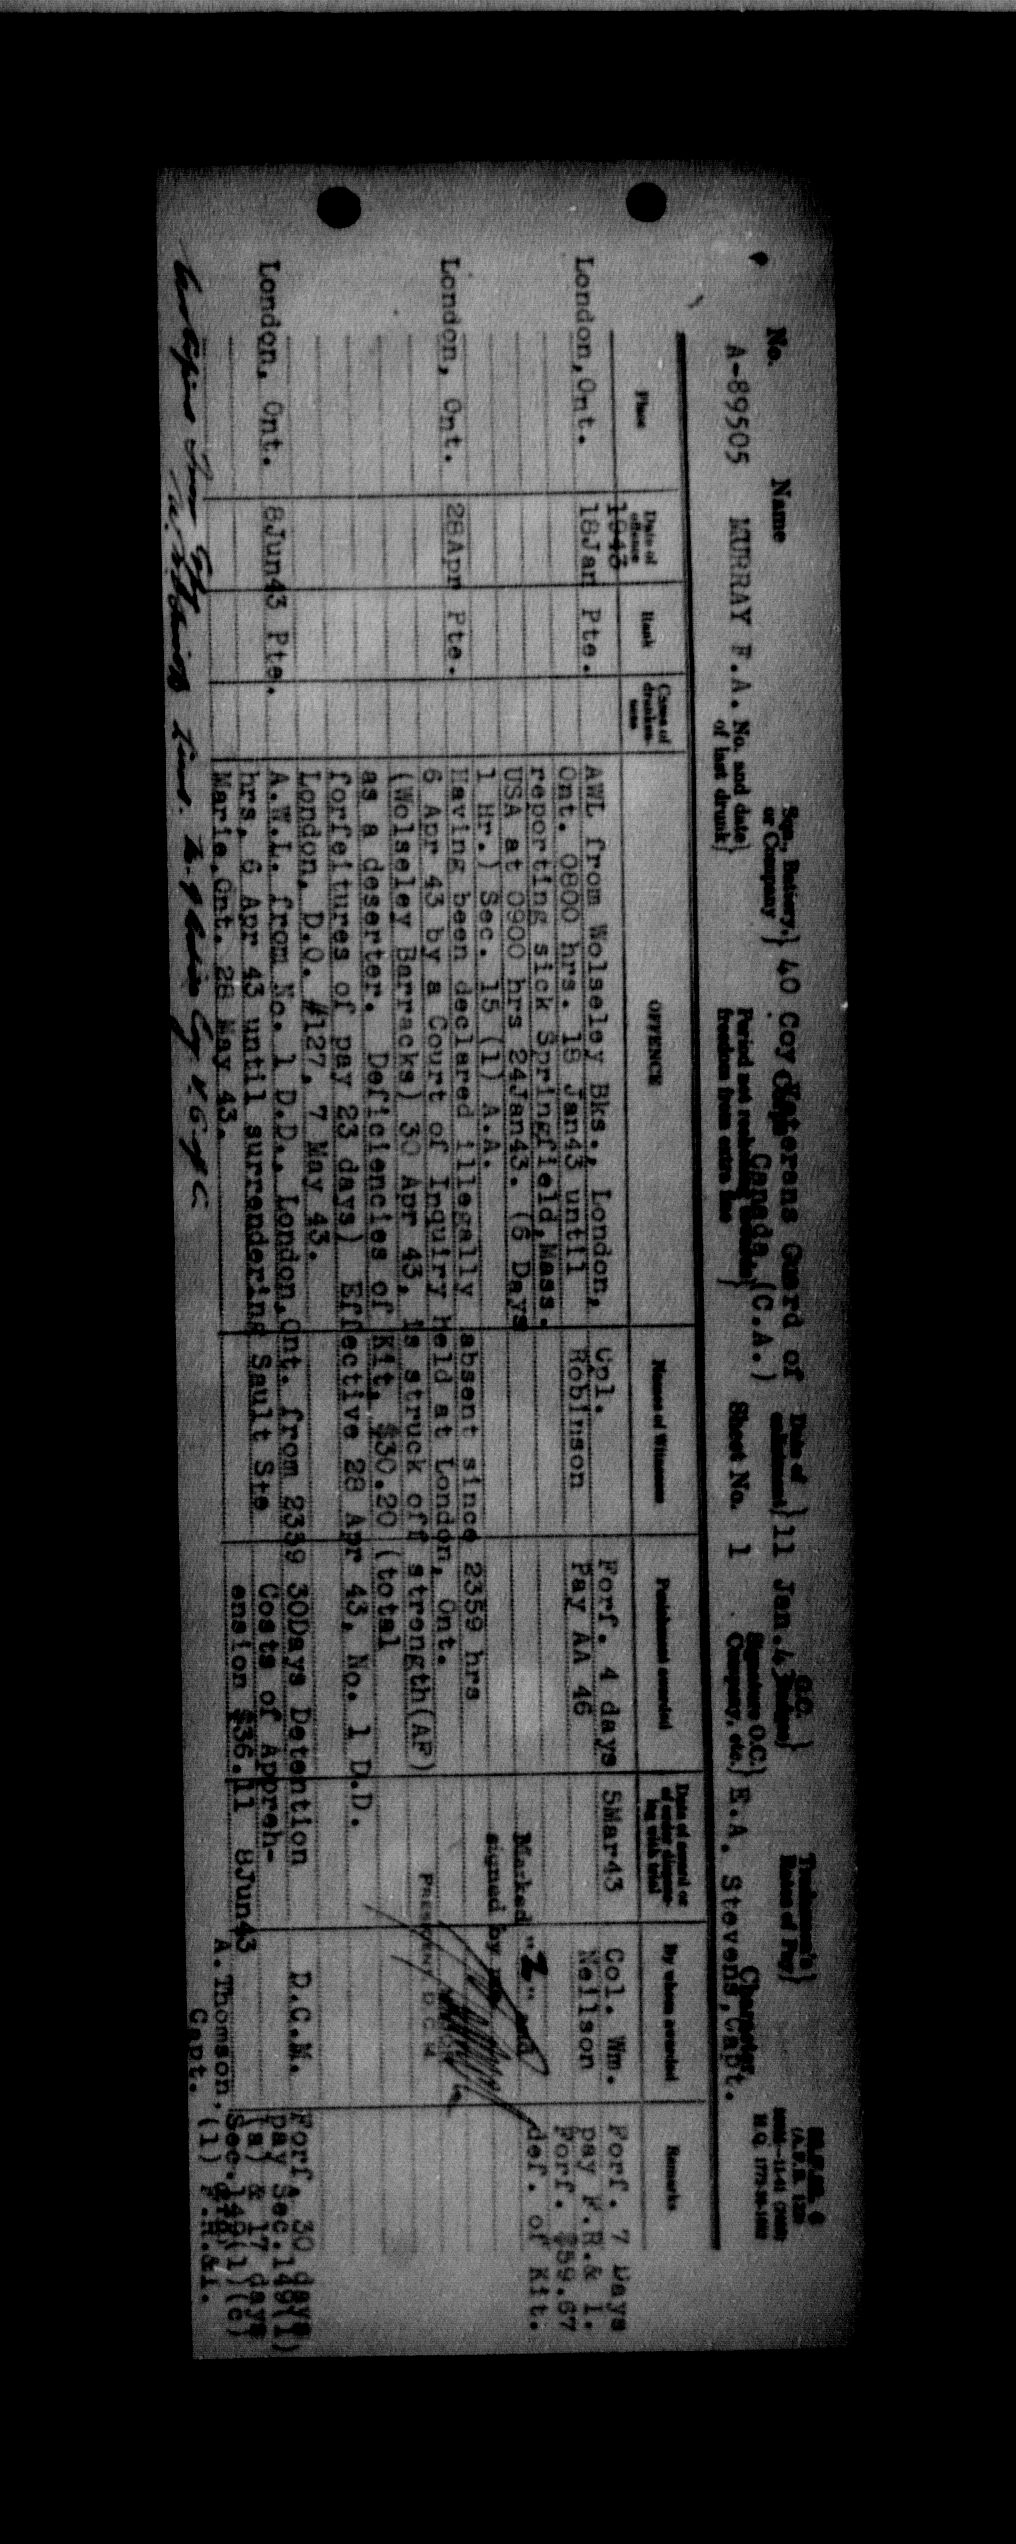 No. Name Sqn., Battery, or Company} 40 Coy Veterans Guard of Canada. (C.A.) Date of enlistment} 11 Jan.43 G.C. Badges} Tradesman's Rates of Pay}
A-89505 MURRAY F.A. No. and date of last drunk} Sheet No. 1 Signature O.C. Company, etc.} E.A. Stevens, Capt. Character
Place Date of offence Rank Cases of drunkenness OFFENCE Names of Witnesses Punishment awarded By whom awarded Remarks
1943
London, Ont. 18Jan Pte. AWL from Wolseley Bks., London, Cpl. Forf. 4 days 5Mar43 Col. Wm. Forf. 7 Days
Ont. 0800 hrs. 18 Jan43 until Robinson Pay AA 46 Neilson pay F.R.& I.
reporting sick Springfield, Mass. Forf. $59.87
USA at 0900 hrs 24Jan43. (6 Days Marked "2" and def. of Kit.
1 Hr.) Sec. 15 (1) A.A. signed by me
London, Ont. 28Apr Pte. Having been declared illegally absent since 2359 hrs
6 Apr 43 by a Court of Inquiry held at London, Ont. PRESIDENT D C M
(Wolseley Barracks) 30 Apr 43, is struck off strength(AF)
as a deserter. Deficiencies of Kit, $30.20 (total
forfeitures of pay 23 days) Effective 28 Apr 43, No. 1 D.D.
London, D.O. #127, 7 May 43.
London, Ont. 8Jun43 Pte. A.W.L. from No. 1 D.D., London, Ont. from 2359 30Days Detention D.C.M. Forf. 30 days
hrs, 6 Apr 43 until surrendering Sault Ste Costs of Appreh- pay Sec.149(1)
Marie, Ont. 28 May 43. ension $36.11 8Jun43 (a) & 17 days
A. Thomson, Sec.149(1)(c)
Capt. (1) F.R.&I.